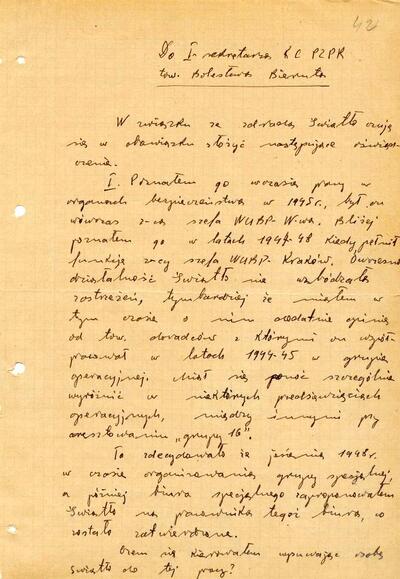 42
Do I-sekretarza KC PZPR
tow. Bolesława Bieruta
W związku ze zdradą Światło czuję
się w obowiązku złożyć następujące oświad-
czenie.
I. Poznałem go wczasie pracy w
organach bezpieczeństwa w 1945 r., był on
wówczas z-cą szefa WUBP-W-wa. Bliżej
poznałem go w latach 1947-48 kiedy pełnił
funkcję z-cy szefa WUBP-Kraków. Owczesna
działalność Światło nie wzbudzała
zastrzeżeń, tymbardziej że miałem w
tym czasie o nim dodatnie opinie
od tow. doradców z którymi on współ-
pracował w latach 1944-45 w grupie
operacyjnej. Miał się ponoć szczególnie
wyróżnić w niektórych przedsięwzięciach
operacyjnych, między innymi przy
aresztowaniu „grupy 16".
To zdecydowało że jesienią 1948 r.
w czasie organizowania grupy specjalnej,
a później biura specjalnego zaproponowałem
Światło na pracownika tegoż biura, co
zostało zatwierdzone.
Czem się kierowałem wysuwając osobę
Światło do tej pracy?